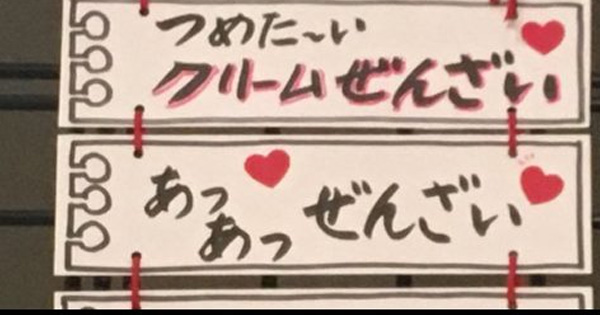 つめた〜い
クリームぜんざい
あっ
あっ ぜんざい